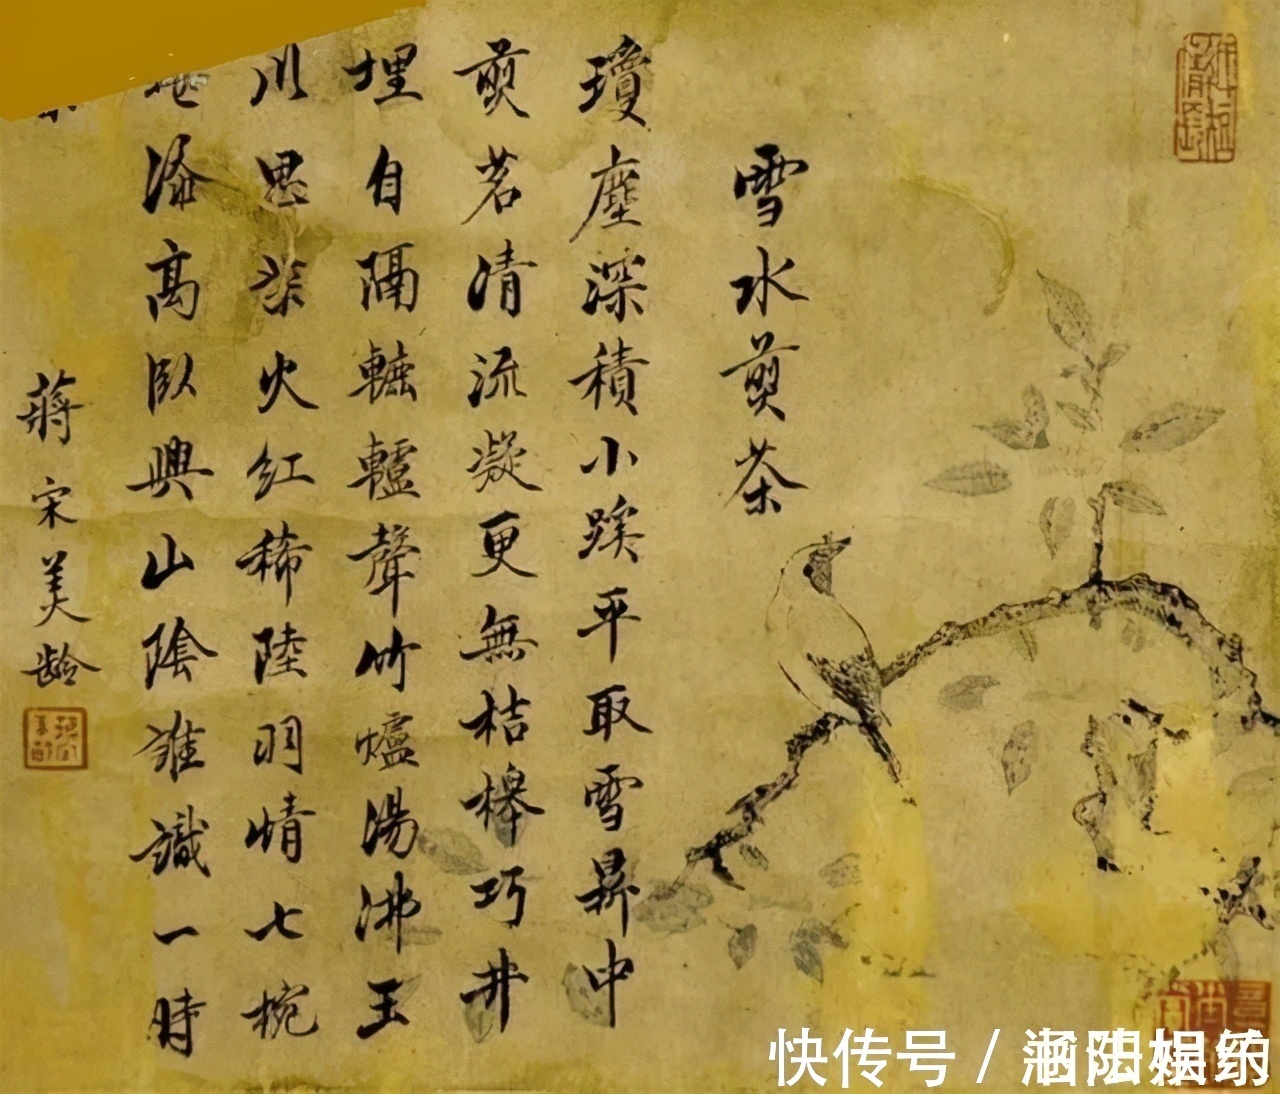 雪水煎茶
瓊塵深積小蹊平取雪鼎中
煎茗清流凝更無桔槔巧井
埋自隔轆轤聲竹爐湯沸玉
川思柴火紅稀陸羽情七椀
添高臥興山陰誰識一時
蔣宋美齡
快传号 /